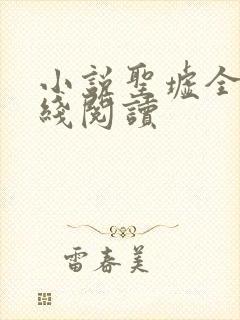 小說聖墟全
綫閱讀
雷春美